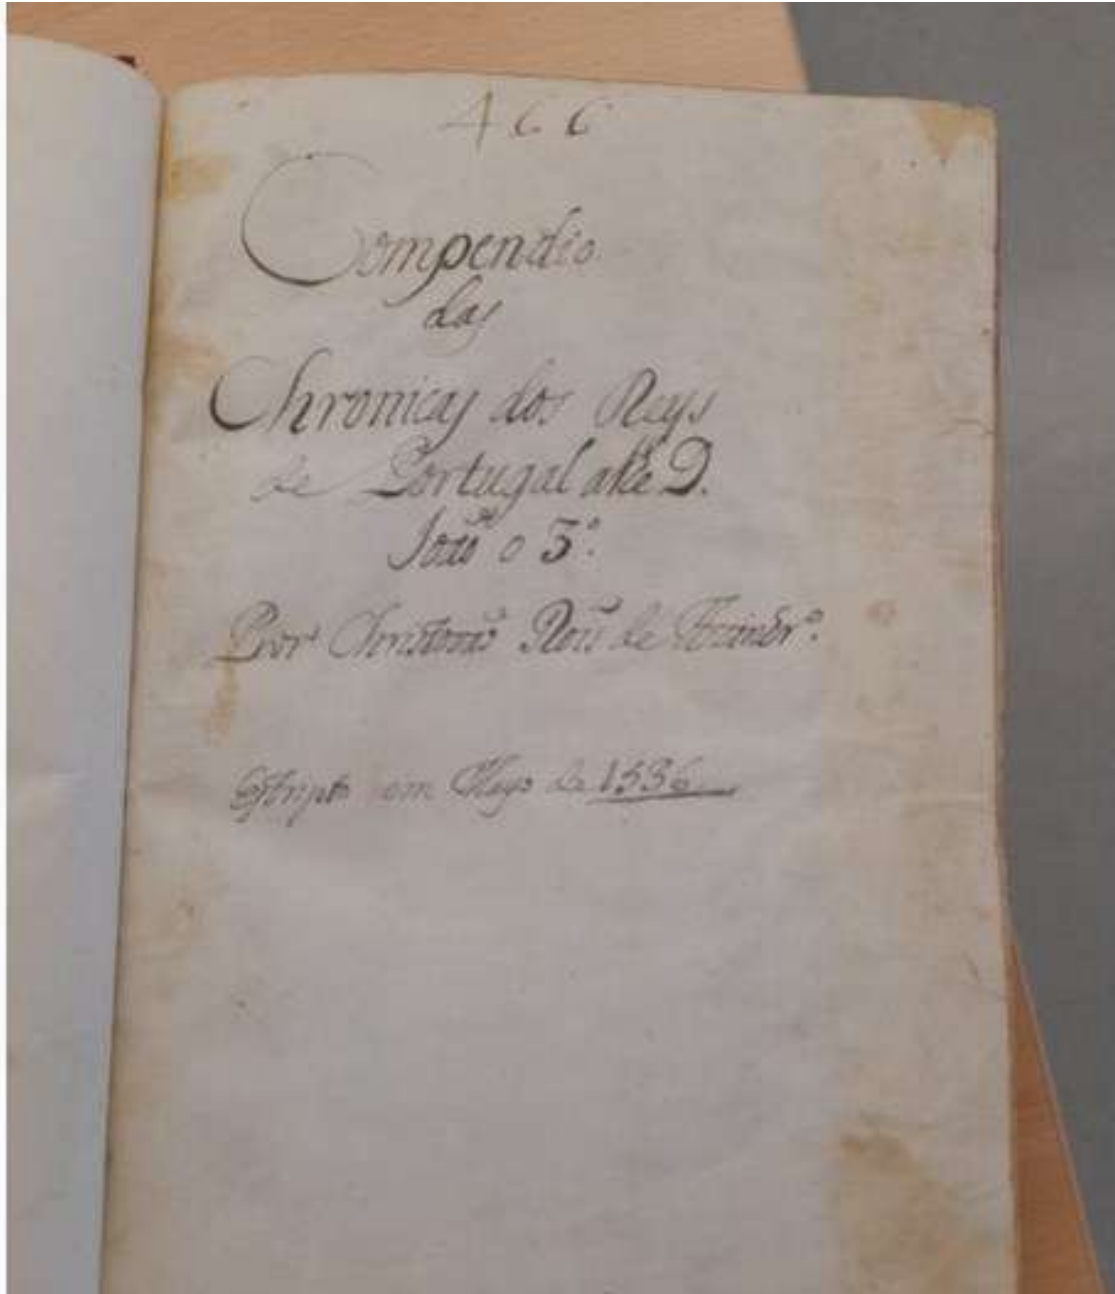 466
Compendio
das
Chronicas dos Reys
de Portugal athe D.
João o 3º.
Por Christovão Roiz de
Escripto em Mayo de 1536